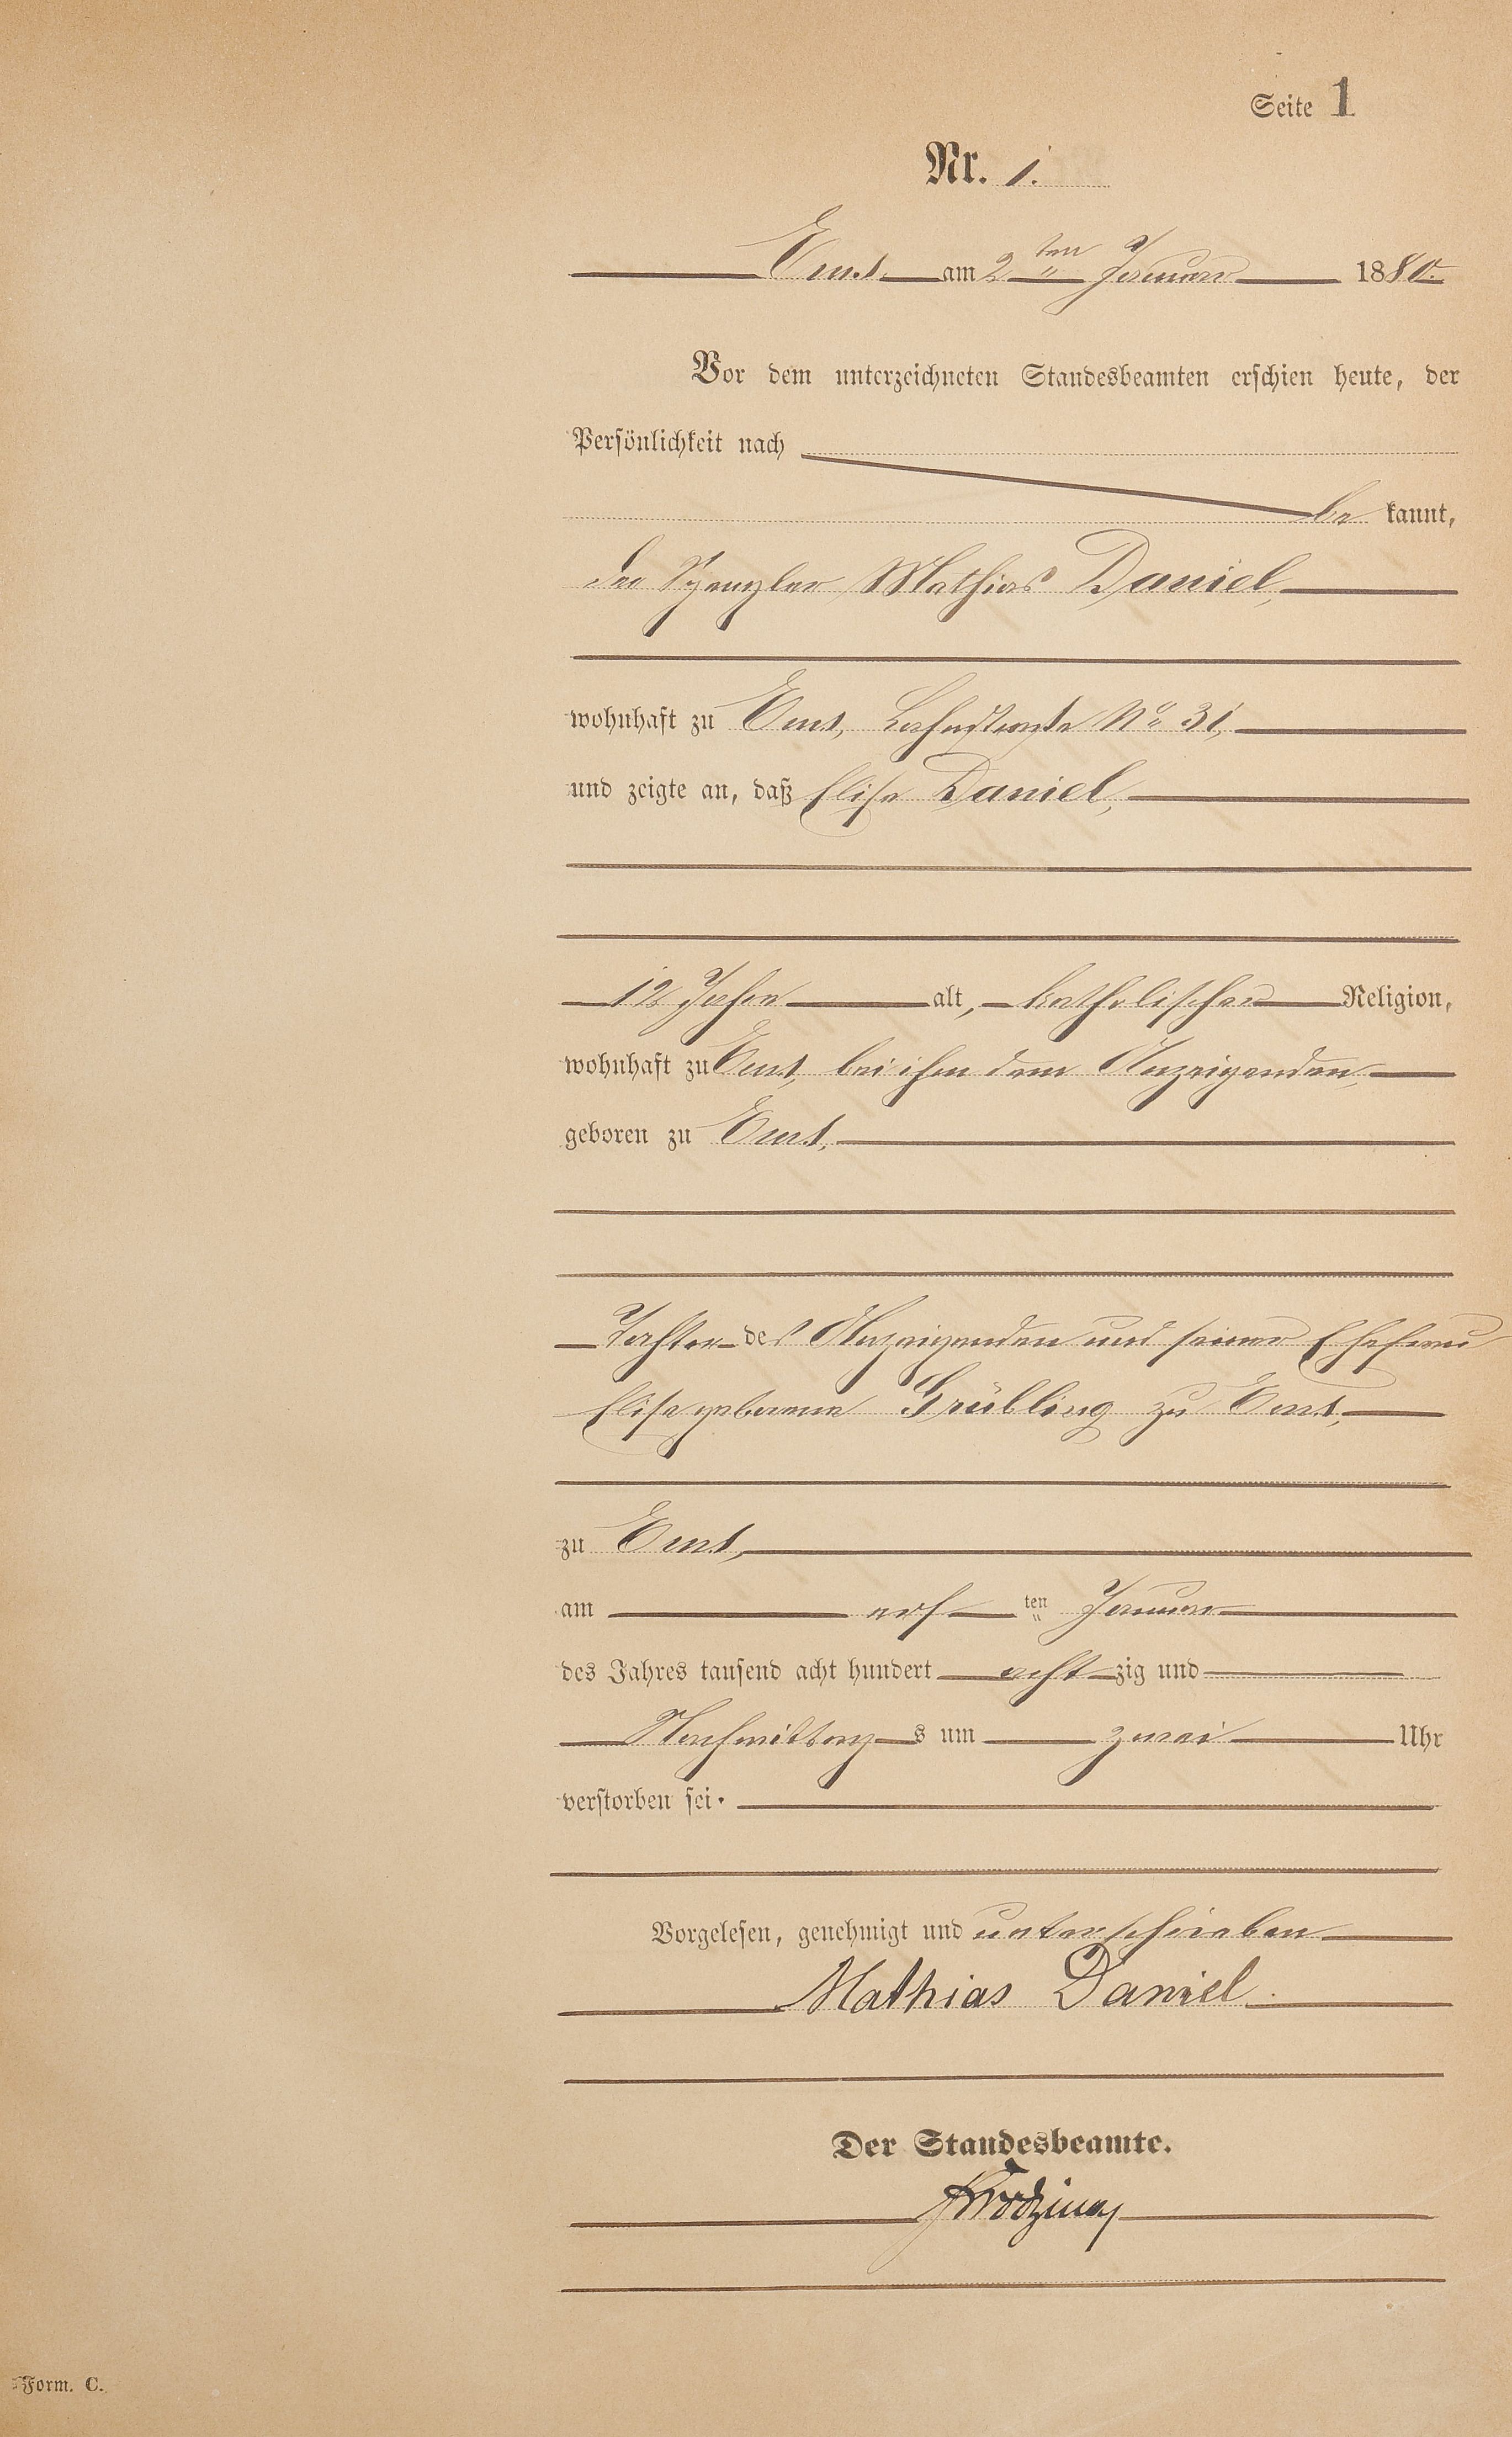 Seite 1
Nr. 1.
Ems am 2ten Januar 1880.
Vor dem unterzeichneten Standesbeamten erschien heute, der
Persönlichkeit nach
be kannt,
der Spengler Mathias Daniel,
wohnhaft zu Ems, Lahnstraße No 31,
und zeigte an, daß Elise Daniel,
12 Jahre alt, katholischer Religion,
wohnhaft zu Ems, bei ihm dem Anzeigenden,
geboren zu Ems,
Tochter des Anzeigenden und seiner Ehefrau
Elise geborene Grübling zu Ems,
zu Ems,
am ers ten Januar
des Jahres tausend acht hundert acht zig und
Nachmittag s um zwei Uhr
verstorben sei.
Vorgelesen, genehmigt und unterschrieben
Mathias Daniel.
Der Standesbeamte.
Form. C.